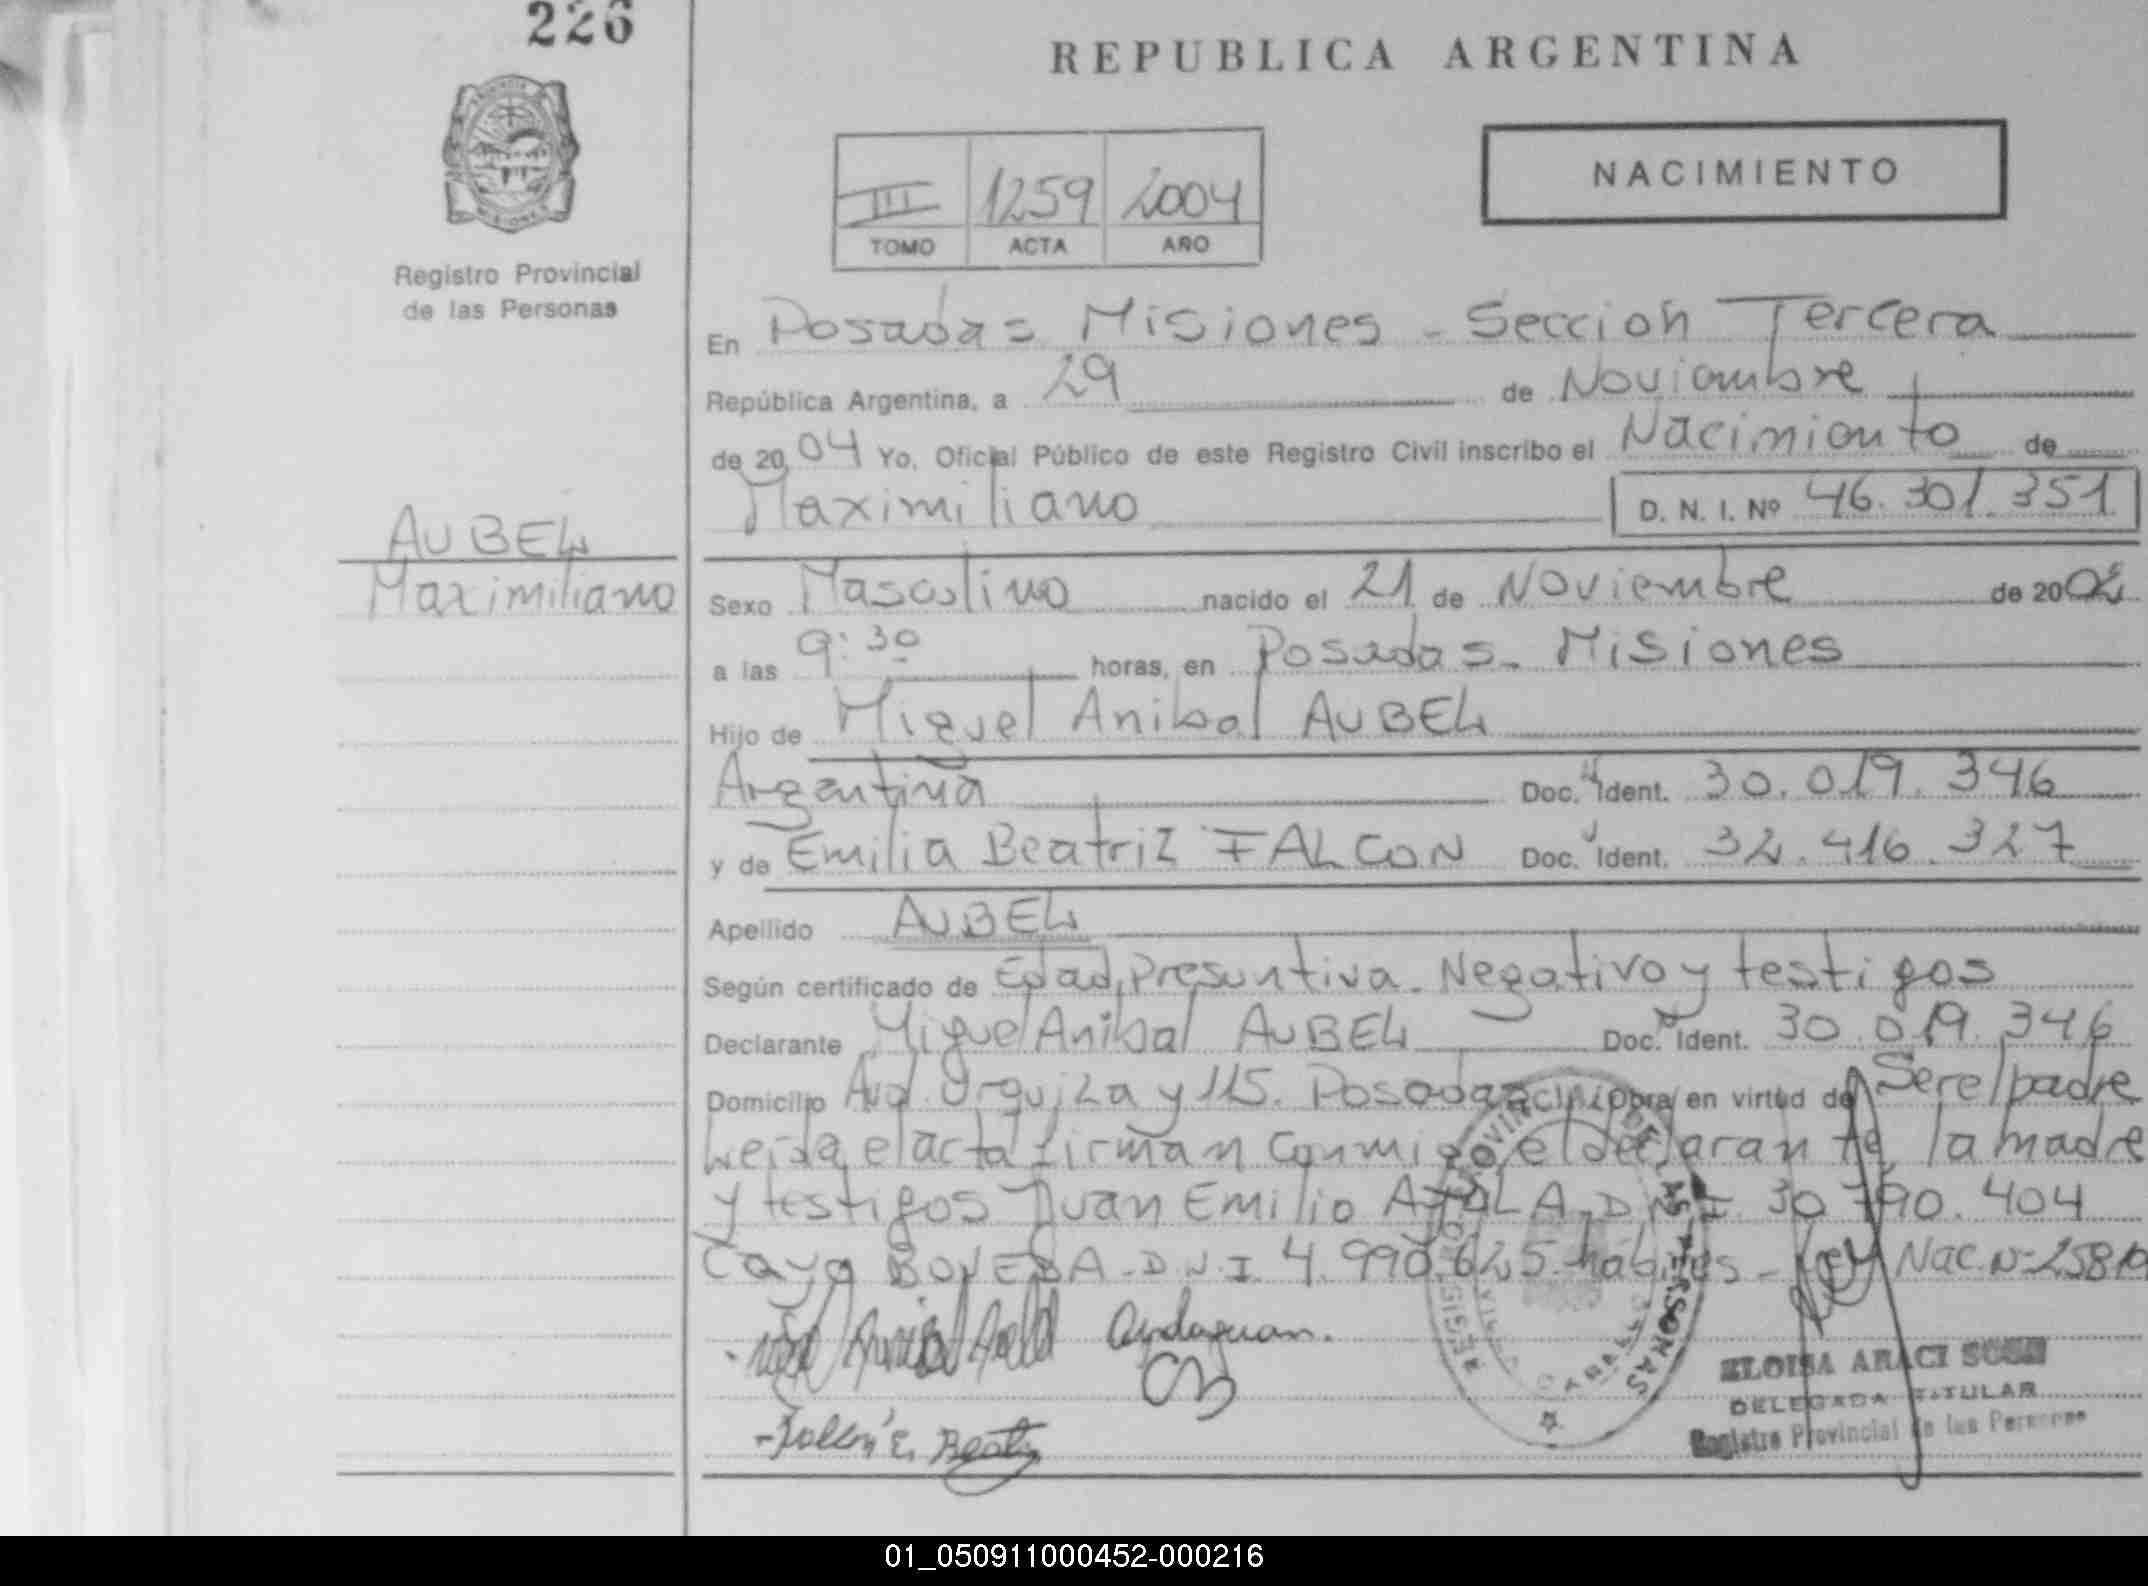 226
REPUBLICA ARGENTINA
NACIMIENTO
III 1259 2004
TOMO ACTA AÑO
Registro Provincial
de las Personas
En Posadas Misiones - Seccion Tercera
República Argentina, a 29 de Noviembre
de 2004 Yo, Oficial Público de este Registro Civil inscribo el Nacimiento de
Maximiliano D. N. I. Nº 46.301.351
AUBEL
Maximiliano
Sexo Masculino nacido el 21 de Noviembre de 2002
a las 9:30 horas, en Posadas - Misiones
Hijo de Miguel Anibal AUBEL
Argentina Doc. Ident. 30.019.346
y de Emilia Beatriz FALCON Doc. Ident. 32.416.327
Apellido AUBEL
Según certificado de Edad Presuntiva. Negativo y testigos
Declarante Miguel Anibal AUBEL Doc. Ident. 30.019.346
Domicilio Avd. Urquiza y 115. Posadas obra en virtud de Ser el padre
Leida el acta firman conmigo, el declarante, la madre
y testigos Juan Emilio AYALA - D.N.I. 30.790.404
Cayo D.N.I 4.990.625 habiles - Ley Nac. N- 25819
Falcon E. Beatriz
ELOISA ARACI SOSA
DELEGADA TITULAR
Registro Provincial de las Personas
01_050911000452-000216